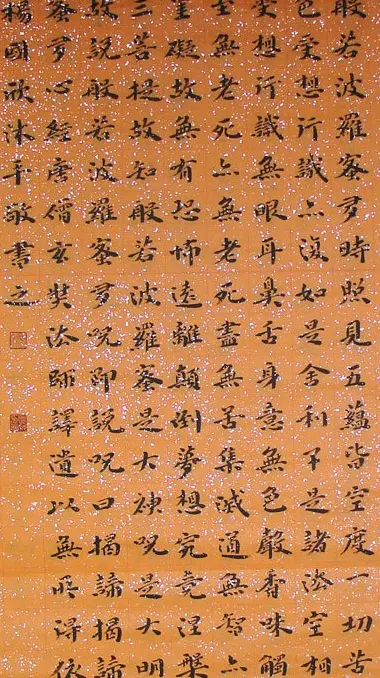 般若波羅蜜多時照見五蘊皆空度一切苦
色受想行識亦復如是舍利子是諸法空相
受想行識無眼耳鼻舌身意無色聲香味觸
至無老死亦無老死盡無苦集滅道無智亦
罣礙故無有恐怖遠離顛倒夢想究竟涅槃
三菩提故知般若波羅蜜是大神呪是大明
故說般若波羅蜜多呪即說呪曰揭諦揭諦
蜜多心經唐僧玄奘法師譯遺以無所得依
楊國欣沐手敬書之